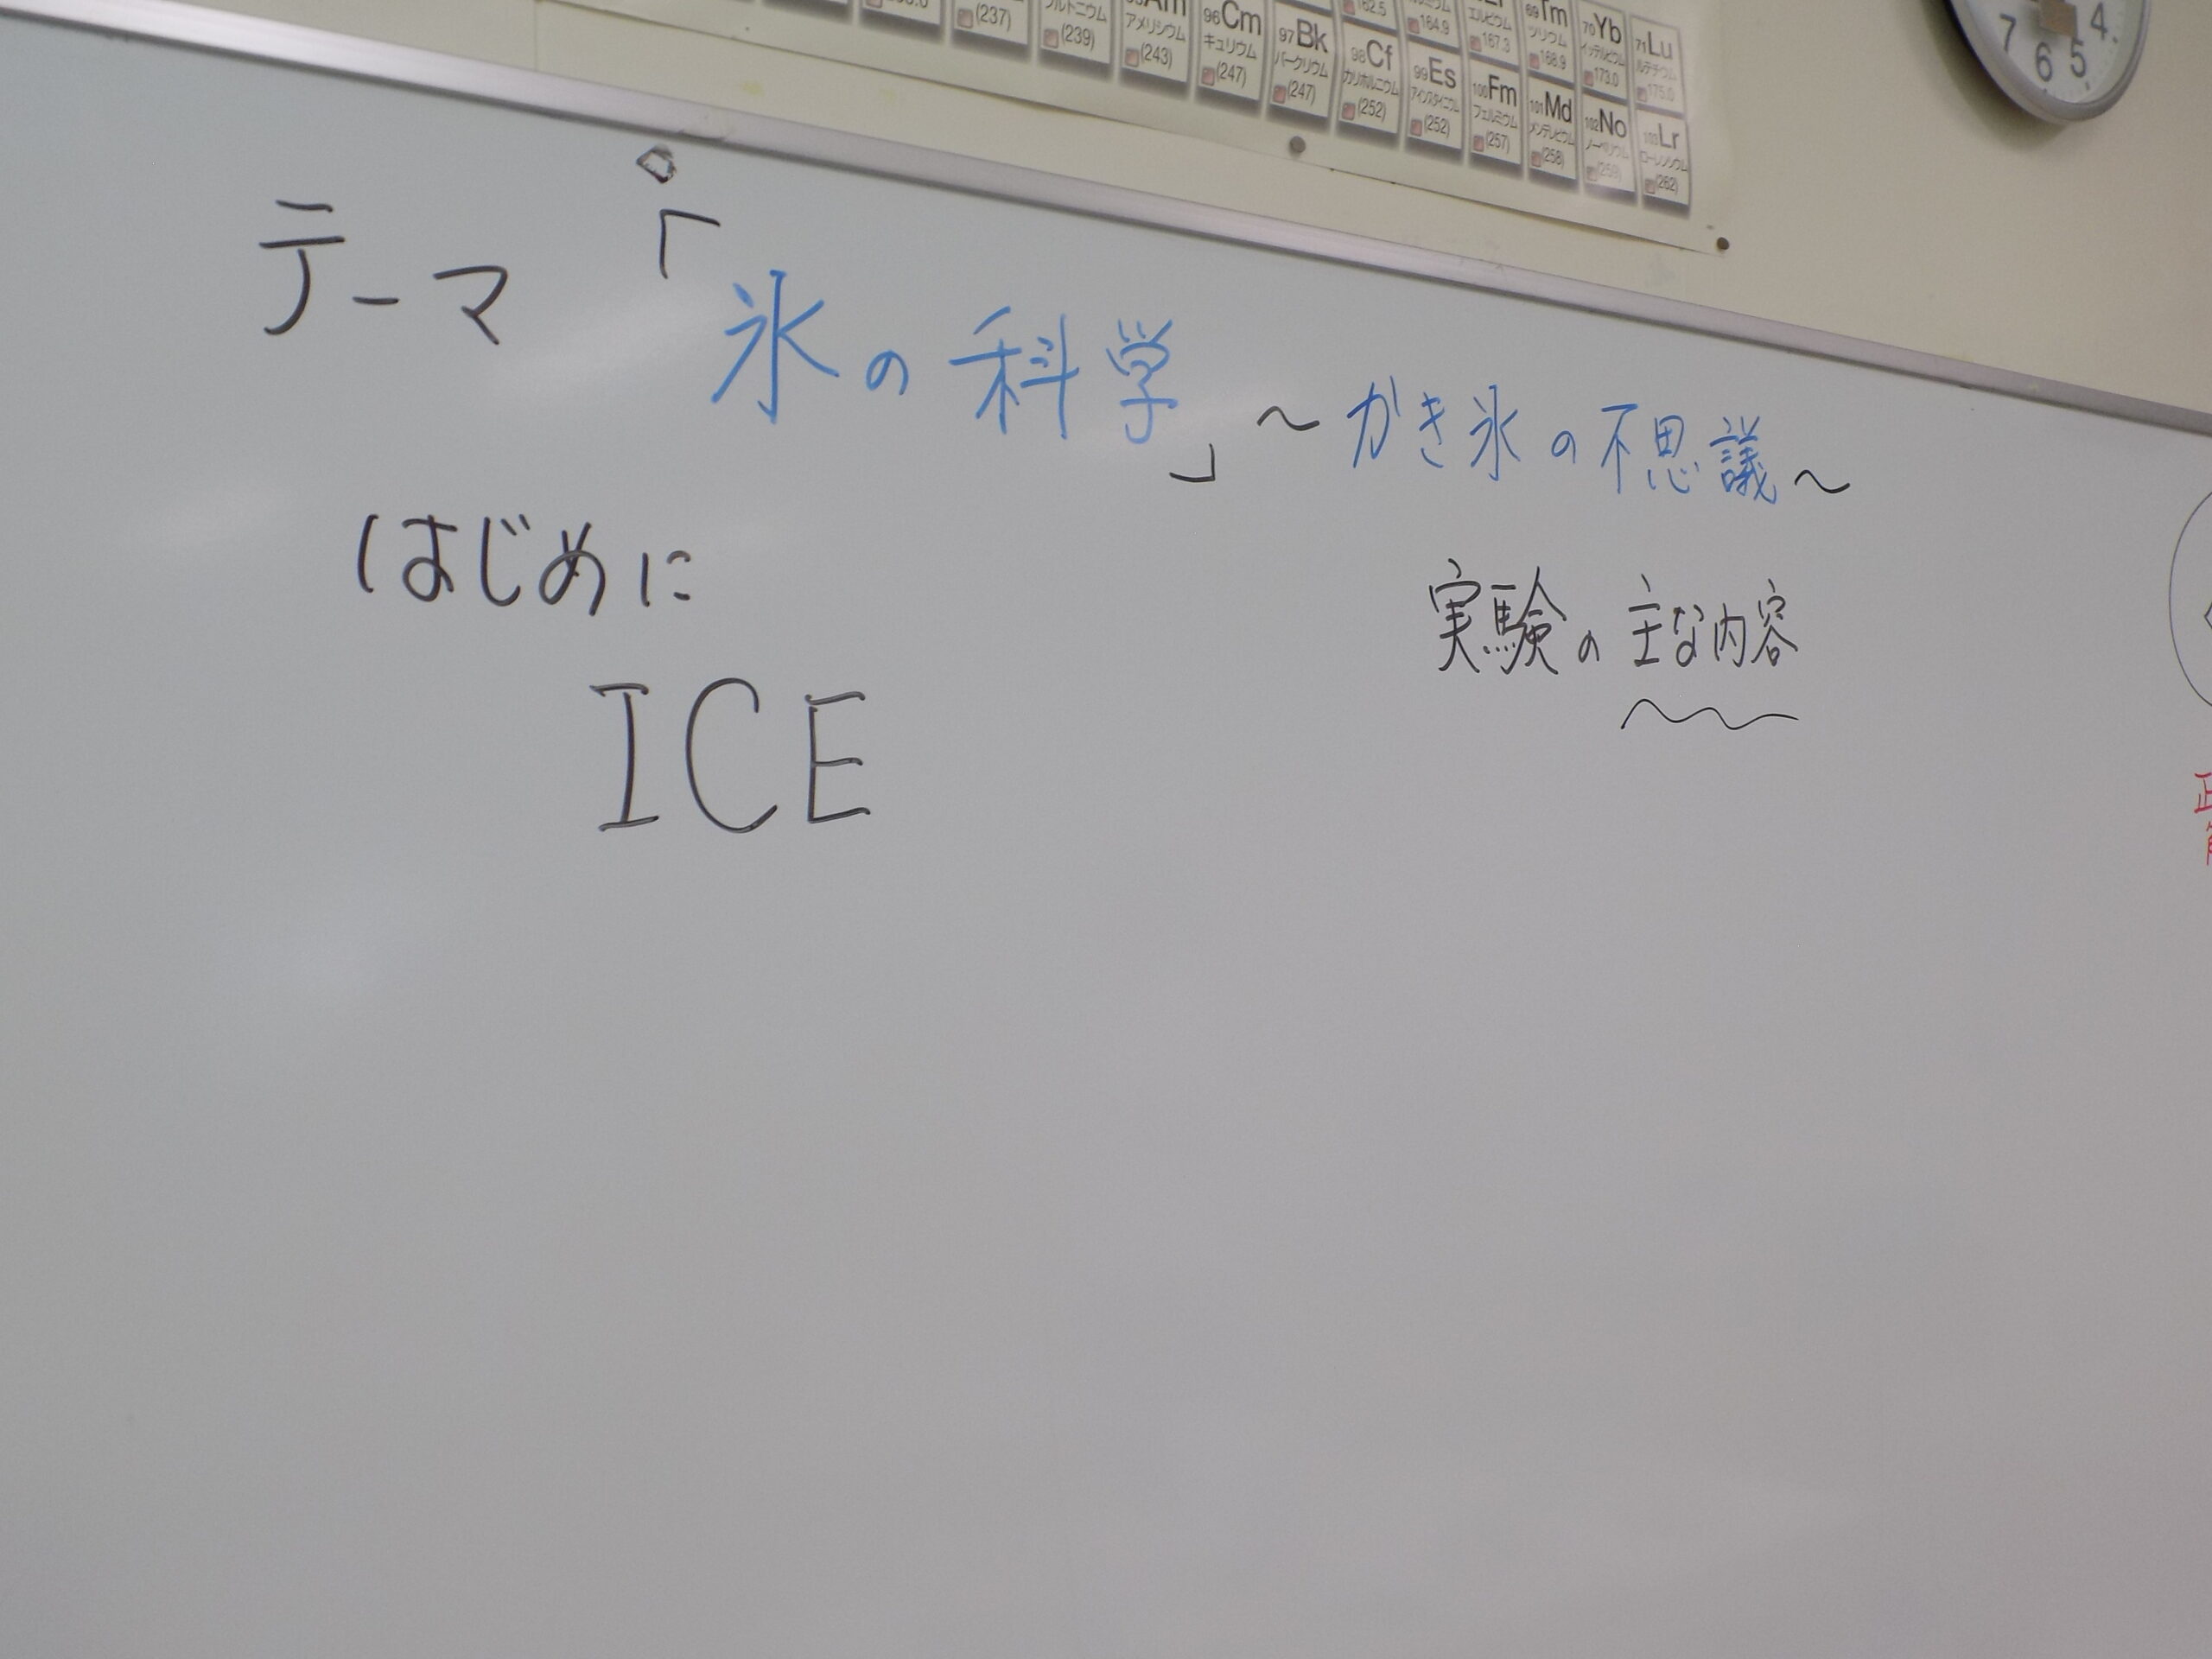 (237)
ルトニウム
(239)
Am
アメリシウム
(243)
96Cm
キュリウム
(247)
97Bk
バークリウム
(247)
162.5
98Cf
カリホルニウム
(252)
164.9
99Es
アインスタイニウム
(252)
エルビウム
167.3
100Fm
フェルミウム
(257)
69Tm
ツリウム
168.9
101Md
メンデレビウム
(258)
70Yb
イッテルビウム
173.0
102No
ノーベリウム
(259)
71Lu
ルテチウム
175.0
103Lr
ローレンシウム
(262)
7 6 5 4
テーマ「氷の科学」〜かき氷の不思議〜
はじめに
ICE
実験の主な内容
正